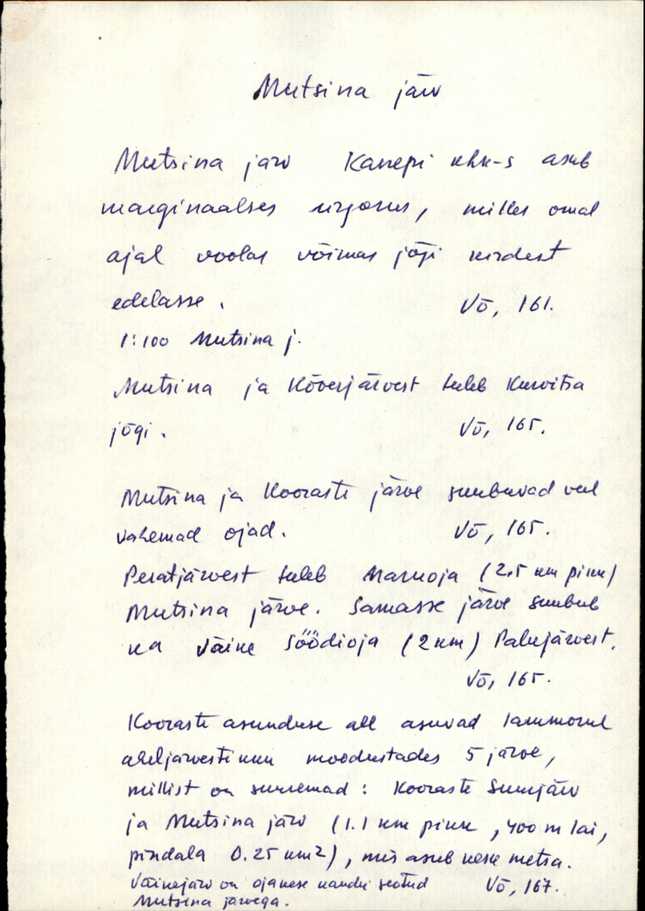 Mutsina järv
Mutsina järv Kanepi khk-s asub
marginaalses ürgorus, milles omal
ajal voolas võimas jõgi kirdest
edelasse. Võ, 161.
1:100 Mutsina j.
Mutsina ja Kõverjärvest tuleb Kurvitsa
jõgi. Võ, 165.
Mutsina ja Kooraste järve suubuvad veel
vahemad ojad. Võ, 165.
Peratjärvest tuleb Maruoja (2.5 km pikk)
Mutsina järve. Samasse järve suubub
ka Väike Söödioja (2 km) Palujärvest.
Võ, 165.
Kooraste asunduse all asuvad lammorul
aheljärvestikku moodustades 5 järve,
millist on suuremad: Kooraste Suurjärv
ja Mutsina järv (1.1 km pikk, 400 m lai,
pindala 0.25 km2), mis asub keset metsa.
Väikejärv on ojakese kaudu seotud Võ, 167.
Mutsina järvega.